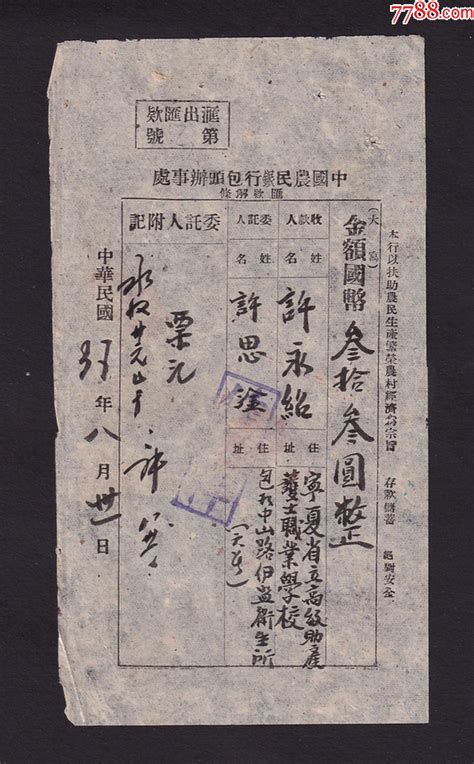 7788.com
中国收藏热线
滙出匯款
第　號
中國農民銀行包頭辦事處
匯款解條
本行以扶助農民生產繁榮農村經濟為宗旨　存款儲蓄　絕對安全
(大寫)金額國幣叁拾叁圓整
收款人姓名　許永紹　住址　寧夏省立高級助產護士職業學校
委託人姓名　許思　住址　包頭中山路伊盟衛生所
委託人附記
票元
中華民國　年八月卅一日